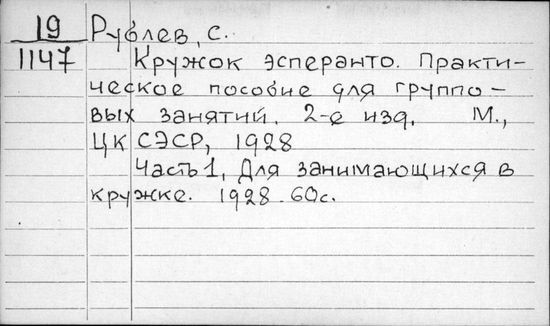 19 Рублев, С.
1147 Кружок эсперанто. Практи-
ческое пособие для группо-
вых занятий. 2-е изд. М.,
ЦК СЭСР, 1928
Часть 1, Для занимающихся в
кружке. 1928. 60с.